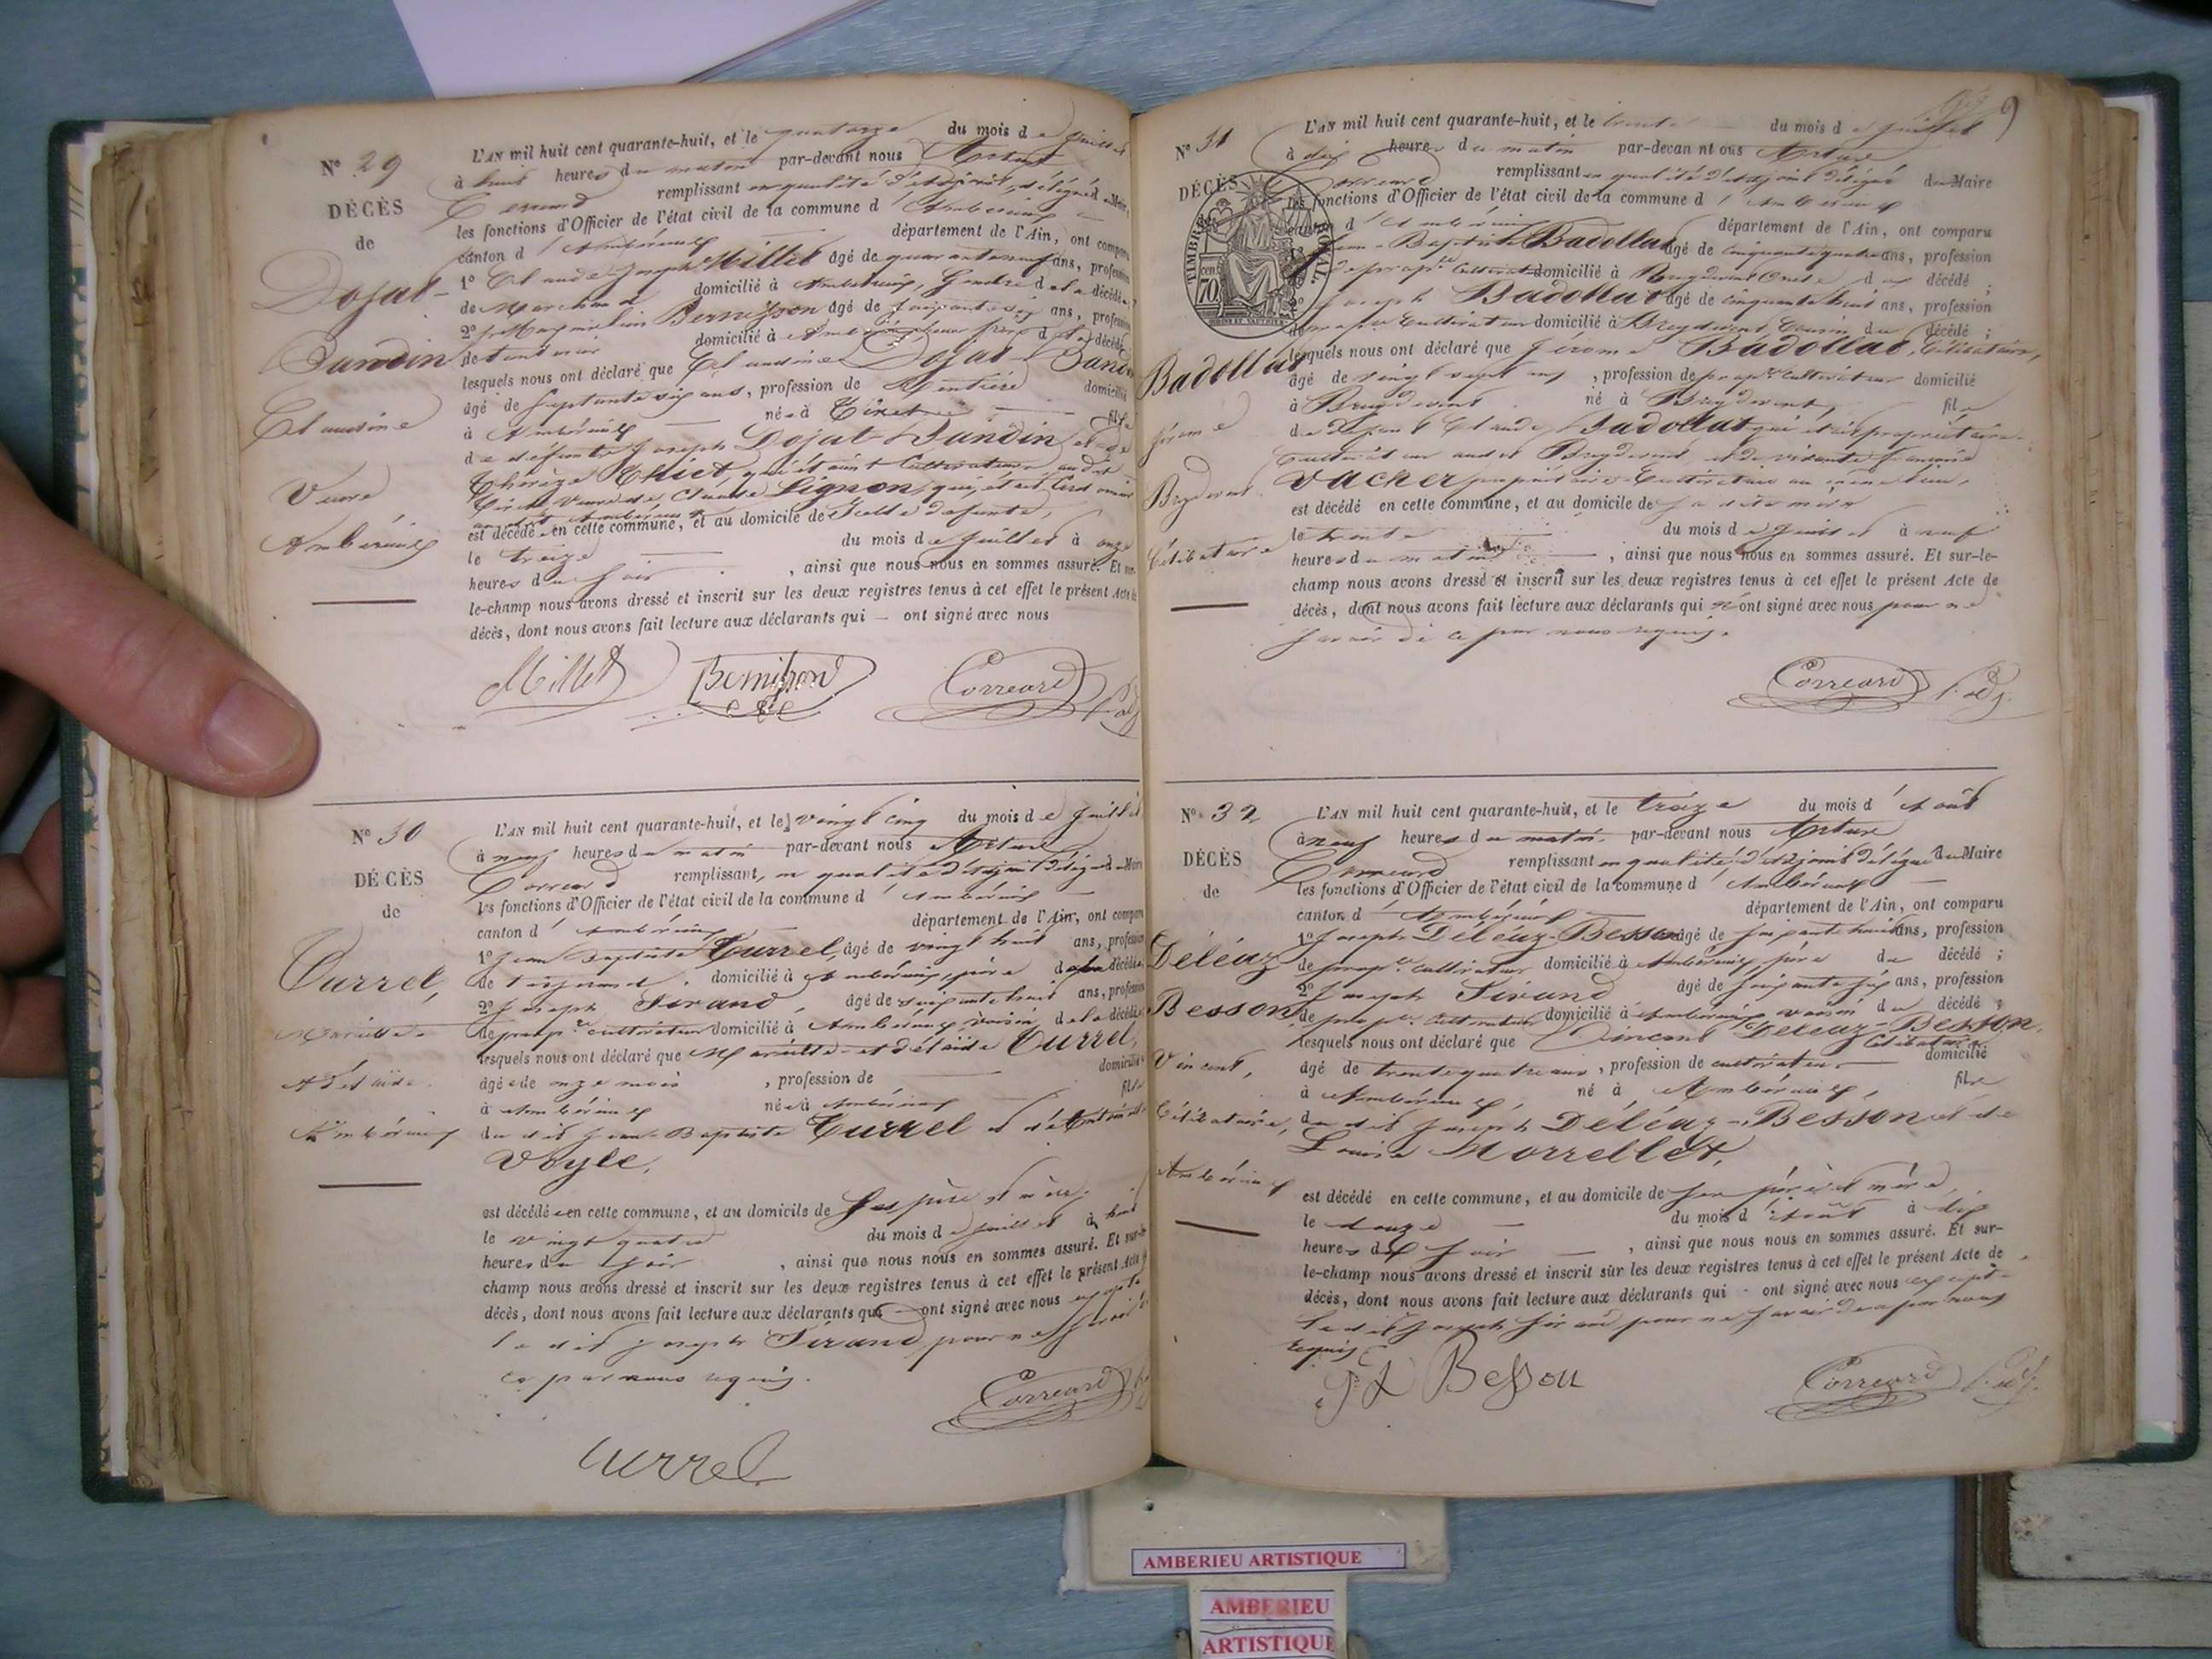 N° 29
DÉCÈS
de
Dojat-
Bandin
Claudine
Veuve
Ambérieux
L'AN mil huit cent quarante-huit, et le quatorze du mois de juillet
à huit heures du matin par-devant nous Artur
Correard remplissant en qualité d'adjoint délégué du Maire,
les fonctions d'Officier de l'état civil de la commune d'Ambérieux
canton d'Ambérieux département de l'Ain, ont comparu
1° Claude Joseph Millet âgé de quarante neuf ans, profession
de Marchand domicilié à Ambérieux, Gendre de la décédée
2° Bernisson âgé de ans, profession
domicilié à d décédé
lesquels nous ont déclaré que Claudine Dojat-Bandin
âgé de septante six ans, profession de Rentière domiciliée
à Ambérieux née à fille
de défunts Joseph Dojat-Bandin et de
Thérèze Thiet, qui étaient Cultivateurs audit
veuve de Claude Lignon, qui était
est décédée en cette commune, et au domicile de
le treize du mois de juillet à onze
heures du soir, ainsi que nous nous en sommes assuré. Et sur-
le-champ nous avons dressé et inscrit sur les deux registres tenus à cet effet le présent Acte de
décès, dont nous avons fait lecture aux déclarants qui — ont signé avec nous
Millet Bernisson Correard
N° 30
DÉCÈS
de
Currel,
Mariette
Adélaïde
Ambérieux
L'AN mil huit cent quarante-huit, et le vingt cinq du mois de juillet
à neuf heures du matin par-devant nous Artur
Correard remplissant, en qualité d'adjoint délégué du Maire
les fonctions d'Officier de l'état civil de la commune d'Ambérieux
canton d'Ambérieux département de l'Ain, ont comparu
1° Jean Baptiste Currel, âgé de vingt huit ans, profession
de tisserand domicilié à Ambérieux, père de la décédée
2° Joseph Sirand, âgé de soixante huit ans, profession
de propre cultivateur domicilié à Ambérieux voisin de la décédée
lesquels nous ont déclaré que Mariette-Adélaïde Currel,
âgée de onze mois, profession de domiciliée
à Ambérieux née à Ambérieux fille
du dit Jean-Baptiste Currel et d'
Voyle,
est décédée en cette commune, et au domicile de ses père et mère,
le vingt quatre du mois de juillet à huit
heures du soir, ainsi que nous nous en sommes assuré. Et sur-le-
champ nous avons dressé et inscrit sur les deux registres tenus à cet effet le présent Acte
décès, dont nous avons fait lecture aux déclarants qui — ont signé avec nous excepté
le dit Joseph Sirand pour ne savoir
ce par nous requis.
Correard
Currel
9
N° 31
DÉCÈS
TIMBRE ROYAL.
70
Badollat
Jérome
Breydevent
Célibataire
L'AN mil huit cent quarante-huit, et le trente du mois de juillet
à dix heures du matin par-devant nous Artur
Correard remplissant en qualité d'adjoint délégué du Maire
les fonctions d'Officier de l'état civil de la commune d'Ambérieux
canton d'Ambérieux département de l'Ain, ont comparu
Jean-Baptiste Badollat âgé de cinquante quatre ans, profession
de propre Cultivateur domicilié à Breydevent Oncle du décédé;
2° Joseph Badollat âgé de cinquante huit ans, profession
de propre Cultivateur domicilié à Breydevent, Cousin du décédé;
lesquels nous ont déclaré que Jérome Badollat, Célibataire,
âgé de vingt sept ans, profession de propre Cultivateur domicilié
à Breydevent né à Breydevent, fils
de défunt Claude Badollat qui était propriétaire-
Cultivateur audit Breydevent, et de vivante
Vacher propriétaire-Cultivatrice au même lieu,
est décédé en cette commune, et au domicile de sa dite mère
le trente du mois de juillet à neuf
heures du matin, ainsi que nous nous en sommes assuré. Et sur-le-
champ nous avons dressé et inscrit sur les deux registres tenus à cet effet le présent Acte de
décès, dont nous avons fait lecture aux déclarants qui n'ont signé avec nous pour ne
savoir de ce par nous requis.
Correard
N° 32
DÉCÈS
de
Déléaz
Besson,
Vincent,
Célibataire,
Ambérieux
L'AN mil huit cent quarante-huit, et le treize du mois d'Août
à neuf heures du matin par-devant nous Artur
Correard remplissant en qualité d'adjoint délégué du Maire
les fonctions d'Officier de l'état civil de la commune d'Ambérieux
canton d'Ambérieux département de l'Ain, ont comparu
1° Joseph Déléaz-Besson âgé de soixante huit ans, profession
de propre cultivateur domicilié à Ambérieux, père du décédé;
2° Joseph Sirand âgé de soixante six ans, profession
de propre Cultivateur domicilié à Ambérieux voisin du décédé;
lesquels nous ont déclaré que Vincent Déléaz-Besson,
Célibataire
âgé de trente quatre ans, profession de cultivateur domicilié
à Ambérieux, né à Ambérieux, fils
du dit Joseph Déléaz-Besson et de
Louise Morrellet,
est décédé en cette commune, et au domicile de ses père et mère,
le douze du mois d'Août à dix
heures du soir, ainsi que nous nous en sommes assuré. Et sur-
le-champ nous avons dressé et inscrit sur les deux registres tenus à cet effet le présent Acte de
décès, dont nous avons fait lecture aux déclarants qui - ont signé avec nous excepté
le dit Joseph Sirand pour ne savoir de ce par nous
requis
J D Besson Correard
AMBERIEU ARTISTIQUE
AMBERIEU
ARTISTIQUE